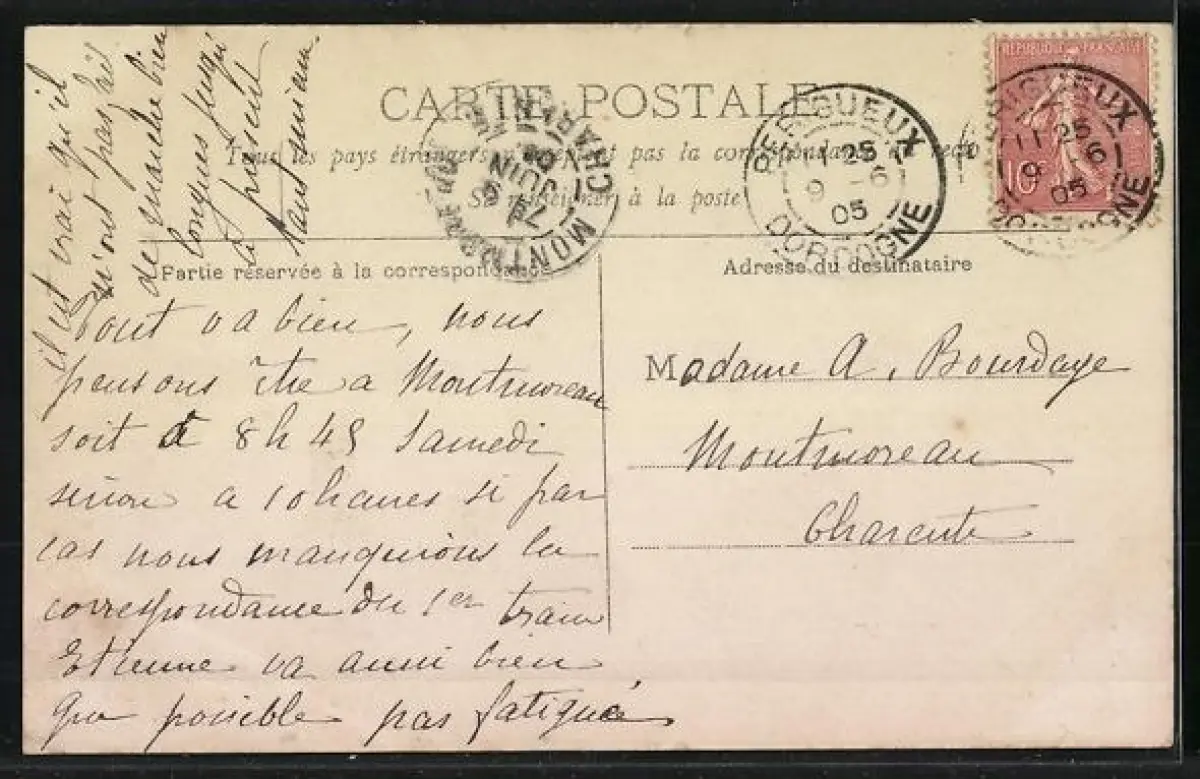 CARTE POSTALE
Tous les pays étrangers n'acceptent pas la correspondance au recto
Se renseigner à la poste
REPUBLIQUE FRANÇAISE
10c
PERIGUEUX
11 25
9 - 6
05
DORDOGNE
PERIGUEUX
11 25
9 - 6
05
DORDOGNE
MONTMOREAU
JUIN
05
CHARENTE
Partie réservée à la correspondance
Adresse du destinataire
Tout va bien, nous
pensons être a Montmoreau
soit à 8h45 Samedi
sinon a 10 heures si par
cas nous manquions la
correspondance du 1er train
Etienne va aussi bien
que possible pas fatigué,
il est vrai qu'il
n'ont pas fait
de manche bien
longues jusqu'
à présent
Madame A. Bourdaye
Montmoreau
Charente